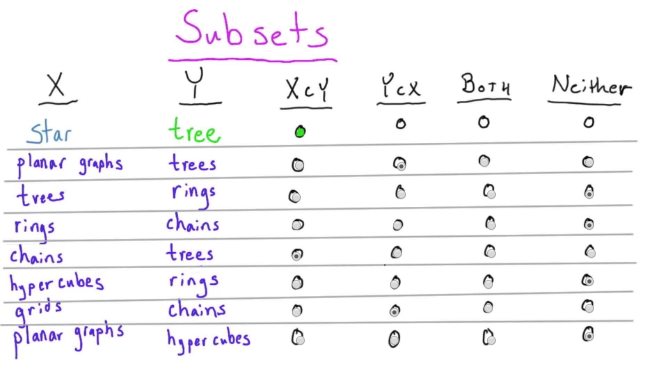 Subsets
X Y X⊂Y Y⊂X BOTH Neither
star tree
planar graphs trees
trees rings
rings chains
chains trees
hypercubes rings
grids chains
planar graphs hypercubes